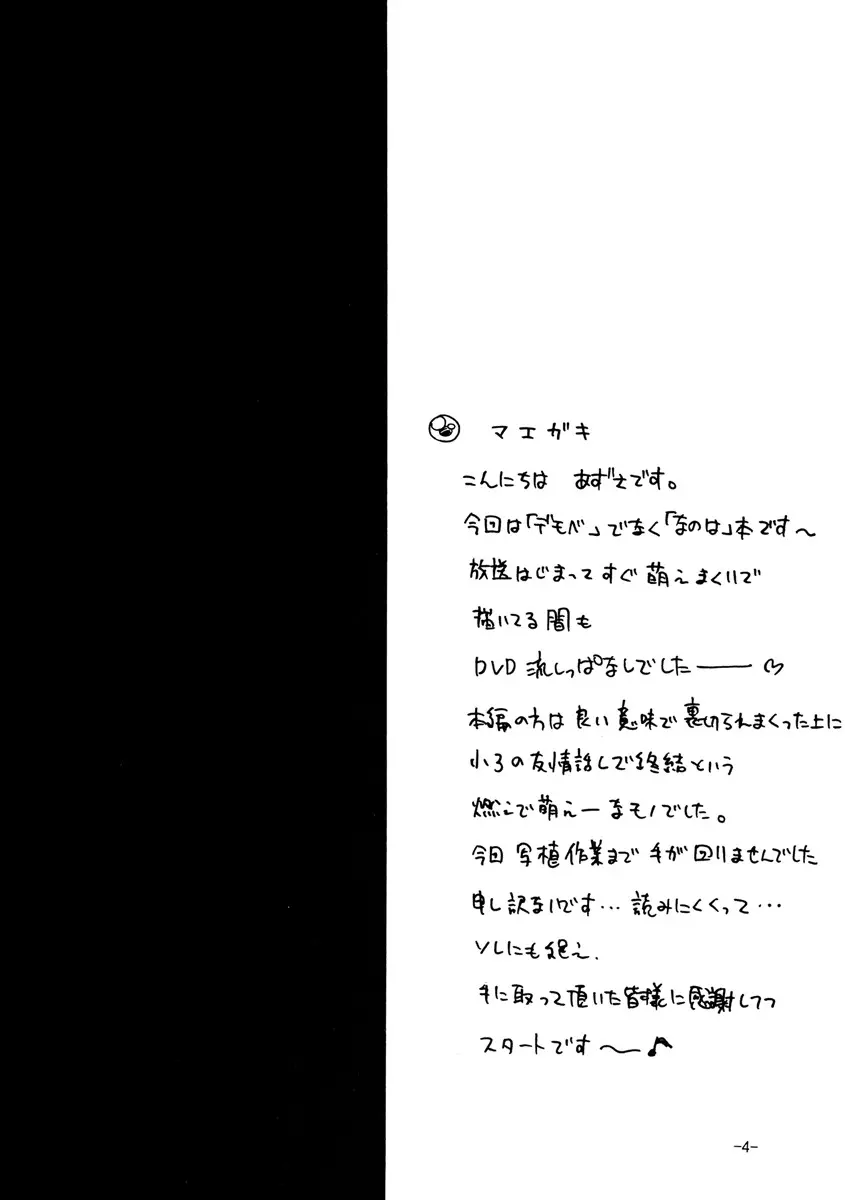 マエガキ
こんにちは あずまです。
今回は「デモベ」でなく「なのは」本です〜
放送はじまってすぐ萌えまくりで
描いてる間も
DVD流しっぱなしでした――♡
本編の方は良い意味で裏切られまくった上に
小3の友情話しで終結という
燃えで萌えーなモノでした。
今回写植作業まで手が回りませんでした
申し訳ないです…読みにくくって…
ソレにも絶え、
手に取って頂いた皆様に感謝してつ
スタートです〜♪
-4-